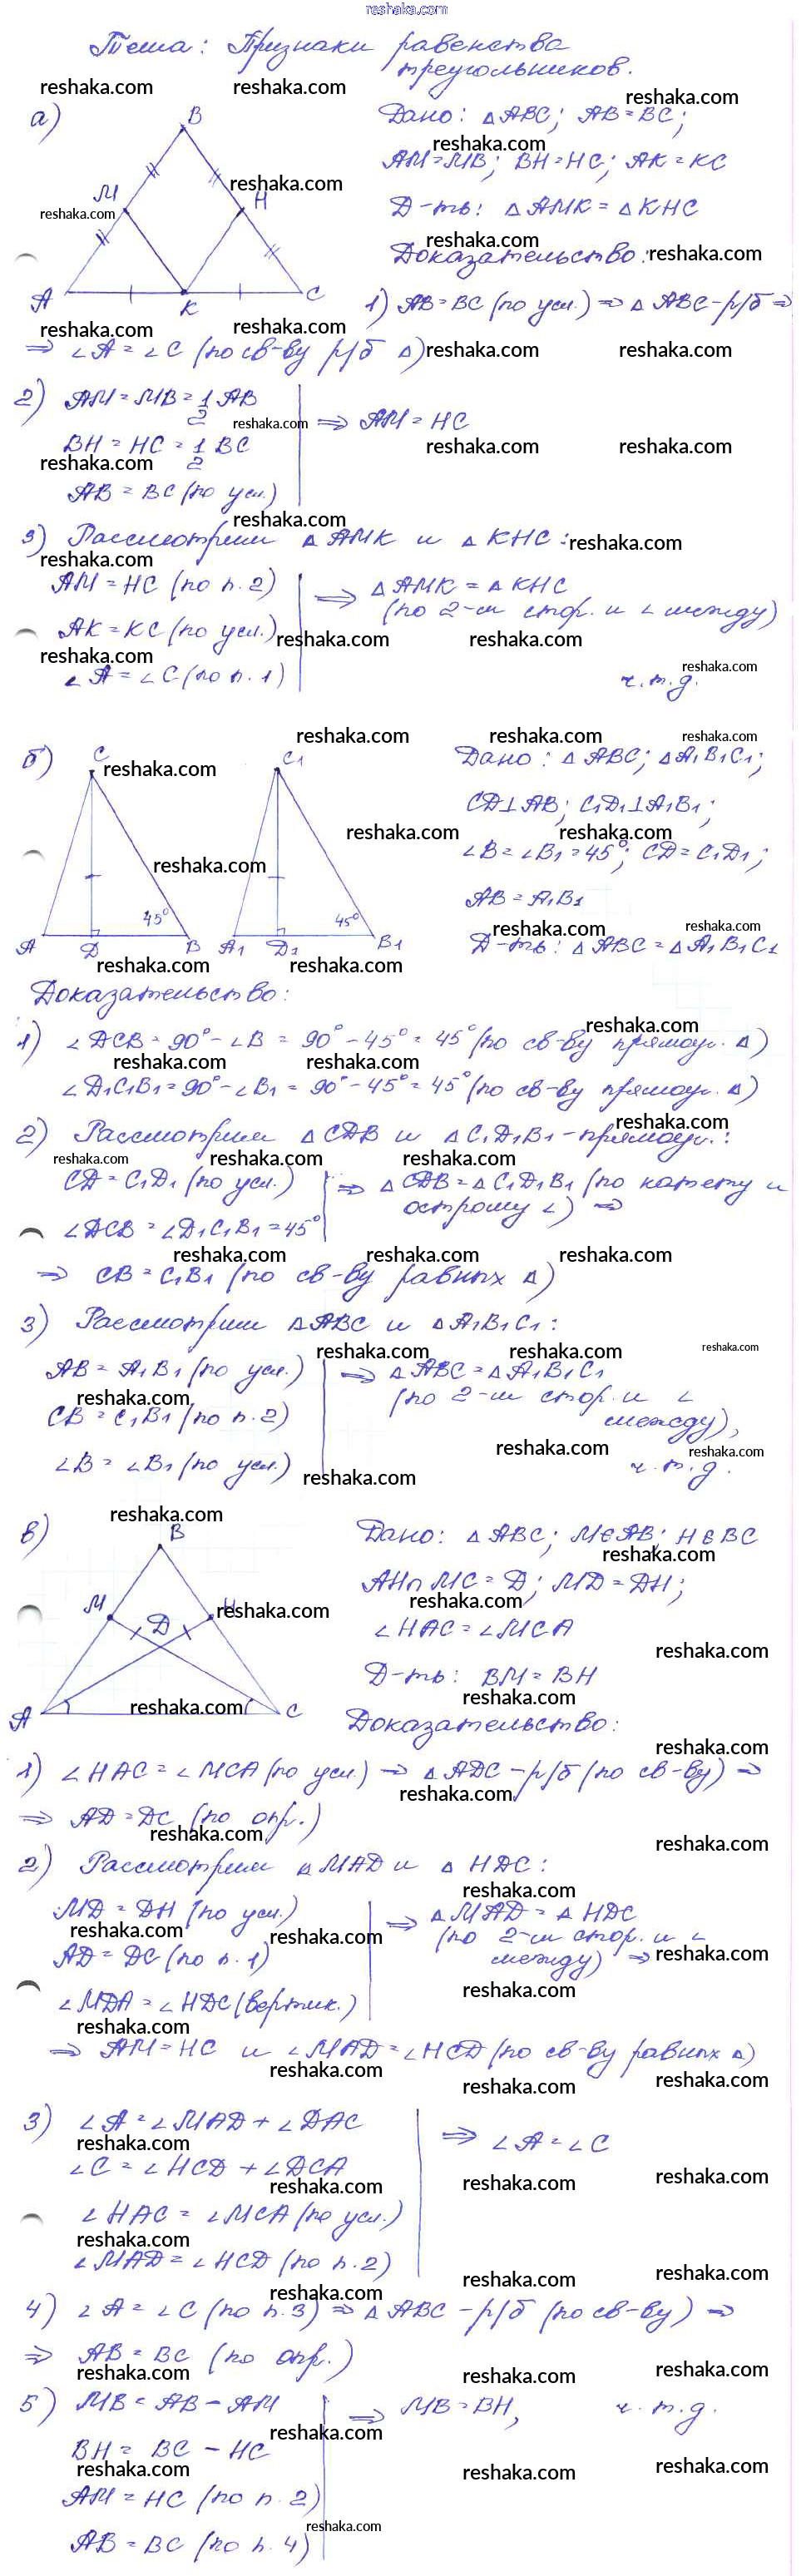 reshaka.com
Тема: Признаки равенства
треугольников.
а)
B
M
H
A
K
C
Дано: △ABC; AB=BC;
AM=MB; BH=HC; AK=KC
Д-ть: △AMK = △KHC
Доказательство:
1) AB=BC (по усл.) ⇒ △ABC-р/б ⇒
⇒ ∠A=∠C (по св-ву р/б △)
2) AM=MB=1/2 AB
BH=HC=1/2 BC
AB=BC (по усл.)
⇒ AM=HC
3) Рассмотрим △AMK и △KHC:
AM=HC (по п.2)
AK=KC (по усл.)
∠A=∠C (по п.1)
⇒ △AMK=△KHC
(по 2-м стор. и ∠ между)
ч.т.д.
б)
C
A
D
B
45°
C1
A1
D1
B1
45°
Дано: △ABC; △A1B1C1;
CD⊥AB; C1D1⊥A1B1;
∠B=∠B1=45°; CD=C1D1;
AB=A1B1
Д-ть: △ABC=△A1B1C1
Доказательство:
1) ∠DCB=90°-∠B=90°-45°=45° (по св-ву прямоуг. △)
∠D1C1B1=90°-∠B1=90°-45°=45° (по св-ву прямоуг. △)
2) Рассмотрим △CDB и △C1D1B1-прямоуг.:
CD=C1D1 (по усл.)
∠DCB=∠D1C1B1=45°
⇒ △CDB=△C1D1B1 (по катету и
острому ∠) ⇒
⇒ CB=C1B1 (по св-ву равных △)
3) Рассмотрим △ABC и △A1B1C1:
AB=A1B1 (по усл.)
CB=C1B1 (по п.2)
∠B=∠B1 (по усл.)
⇒ △ABC=△A1B1C1
(по 2-м стор. и ∠
между),
ч.т.д.
в)
B
M
D
H
A
C
Дано: △ABC; M∈AB; H∈BC
AH∩MC=D; MD=DH;
∠HAC=∠MCA
Д-ть: BM=BH
Доказательство:
1) ∠HAC=∠MCA (по усл.) ⇒ △ADC-р/б (по св-ву) ⇒
⇒ AD=DC (по опр.)
2) Рассмотрим △MAD и △HDC:
MD=DH (по усл.)
AD=DC (по п.1)
∠MDA=∠HDC (вертик.)
⇒ △MAD=△HDC
(по 2-м стор. и ∠
между) ⇒
⇒ AM=HC и ∠MAD=∠HCD (по св-ву равных △)
3) ∠A=∠MAD+∠DAC
∠C=∠HCD+∠DCA
∠HAC=∠MCA (по усл.)
∠MAD=∠HCD (по п.2)
⇒ ∠A=∠C
4) ∠A=∠C (по п.3) ⇒ △ABC-р/б (по св-ву) ⇒
⇒ AB=BC (по опр.)
5) MB=AB-AM
BH=BC-HC
AM=HC (по п.2)
AB=BC (по п.4)
⇒ MB=BH,
ч.т.д.